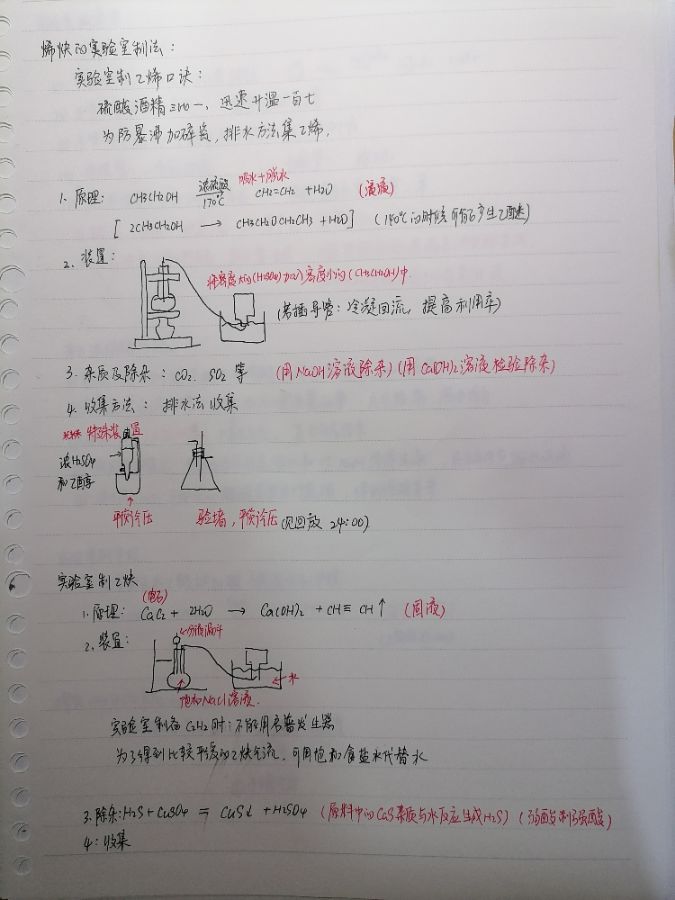 烯炔的实验室制法：
实验室制乙烯口诀：
硫酸酒精三比一，迅速升温一百七
为防暴沸加碎瓷，排水方法集乙烯．
吸水+脱水
1. 原理： CH3CH2OH 浓硫酸 170℃ CH2=CH2 + H2O (液液)
[ 2CH3CH2OH → CH3CH2OCH2CH3 + H2O ] (140℃的时候可能产生乙醚)
2. 装置：
将密度大的(H2SO4)加入密度小的(CH3CH2OH)中.
(若插导管：冷凝回流，提高利用率)
3. 杂质及除杂： CO2. SO2 等 (用NaOH溶液除杂) (用Ca(OH)2溶液检验除杂)
4. 收集方法： 排水法收集
特殊装置
浓H2SO4
和乙醇
平衡气压 验堵，平衡气压 (见回放 24:00)
实验室制乙炔
(电石)
1. 原理： CaC2 + 2H2O → Ca(OH)2 + CH≡CH↑ (固液)
2. 装置：
分液漏斗
水
饱和NaCl溶液.
实验室制备C2H2时：不能用启普发生器
为了得到比较平缓的乙炔气流，可用饱和食盐水代替水
3. 除杂: H2S + CuSO4 = CuS↓ + H2SO4 (原料中的CaS杂质与水反应生成H2S) (弱酸制强酸)
4：收集